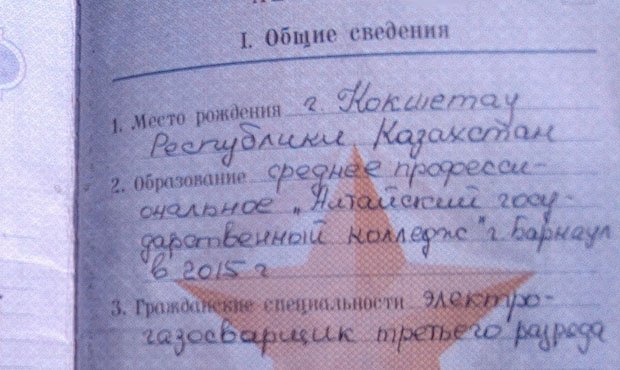 I. Общие сведения
1. Место рождения г. Кокшетау
Республики Казахстан
2. Образование среднее професси-
ональное „Алтайский госу-
дарственный колледж" г. Барнаул
в 2015 г
3. Гражданские специальности электро-
газосварщик третьего разряда